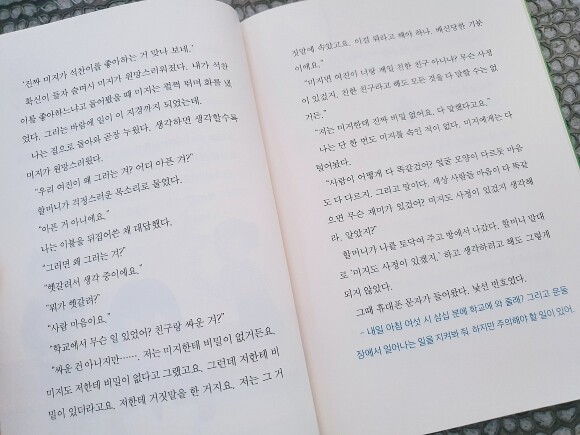 '진짜 미지가 석찬이를 좋아하는 거 맞나 보네.'
확신이 들자 슬며시 미지가 원망스러워졌다. 내가 석찬
이를 좋아하느냐고 물어봤을 때 미지는 펄쩍 뛰며 화를 냈
었다. 그러는 바람에 일이 이 지경까지 되었는데.
나는 집으로 돌아와 곧장 누웠다. 생각하면 생각할수록
미지가 원망스러웠다.
"우리 여진이 왜 그러는 거? 어디 아픈 겨?"
할머니가 걱정스러운 목소리로 물었다.
"아픈 거 아니에요."
나는 이불을 뒤집어쓴 채 대답했다.
"그러면 왜 그러는 겨?"
"헷갈려서 생각 중이에요."
"뭐가 헷갈려?"
"사람 마음이요."
"학교에서 무슨 일 있었어? 친구랑 싸운 겨?"
"싸운 건 아니지만……. 저는 미지한테 비밀이 없거든요.
미지도 저한테 비밀이 없다고 그랬고요. 그런데 저한테 비
밀이 있더라고요. 저한테 거짓말을 한 거지요. 저는 그 거
짓말에 속았고요. 이걸 뭐라고 해야 하나. 배신당한 기분
이에요."
"미지면 여진이 너랑 제일 친한 친구 아니냐? 무슨 사정
이 있겠지. 친한 친구라고 해도 모든 것을 다 말할 수는 없
거든."
"저는 미지한테 진짜 비밀 없어요. 다 말했다고요."
나는 단 한 번도 미지를 속인 적이 없다. 미지에게는 다
털어놨다.
"사람이 어떻게 다 똑같겄어? 얼굴 모양이 다르듯 마음
도 다 다르지. 그리고 말이다. 세상 사람들 마음이 다 똑같
으면 무슨 재미가 있겄어? 미지도 사정이 있겠지 생각해
라. 알았지?"
할머니가 나를 토닥여 주고 방에서 나갔다. 할머니 말대
로 '미지도 사정이 있겠지.' 하고 생각하려고 해도 그렇게
되지 않았다.
그때 휴대폰 문자가 들어왔다. 낯선 번호였다.
- 내일 아침 여섯 시 삼십 분에 학교에 와 줄래? 그리고 운동
장에서 일어나는 일을 지켜봐 줘. 하지만 주의해야 할 일이 있어.